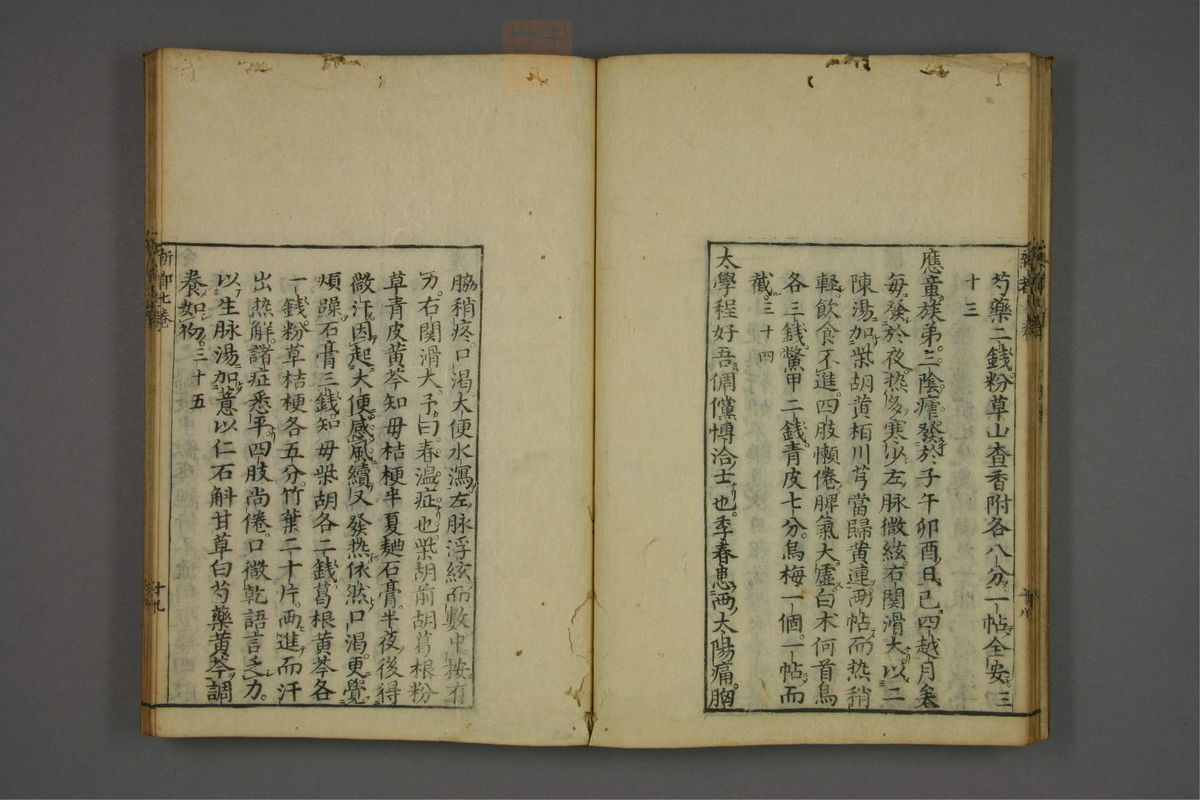 芍藥二錢粉草山查香附各八分一帖全安三
十三
應童族弟三陰瘧發於子午卯酉日已四越月矣
每發於夜熱多寒少左脉微絃右関滑大以二
陳湯加柴胡黄栢川芎當歸黄連両帖而热稍
軽飲食不進四肢懶倦脾氣大虚白术何首烏
各三錢鱉甲二錢青皮七分烏梅一個一帖而
截三十四
太學程好吾倜儻博洽士也季春患両太陽痛胸
脇稍疼口渴大便水瀉左脉浮絃而數中按有
力右関滑大予曰春温症也柴胡前胡葛根粉
草青皮黄芩知母桔梗半夏麯石膏半夜後得
微汗因起大便感風續又發热依然口渴更覺
煩躁石膏三錢知母柴胡各二錢葛根黄芩各
一錢粉草桔梗各五分竹葉二十片両進而汗
出热解諸症悉平四肢尚倦口微乾語言乏力
以生脉湯加薏以仁石斛甘草白芍藥黄芩調
養如初三十五
新都七卷
十九